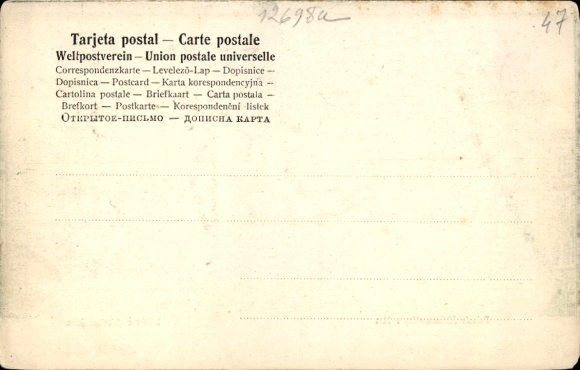 12698a
47
Tarjeta postal — Carte postale
Weltpostverein — Union postale universelle
Correspondenzkarte — Levelező-Lap — Dopisnice —
Dopisnica — Postcard — Karta korespondencyjna —
Cartolina postale — Briefkaart — Carta postala —
Brefkort — Postkarte — Korespondenční lístek
Открытое-письмо — дописна карта